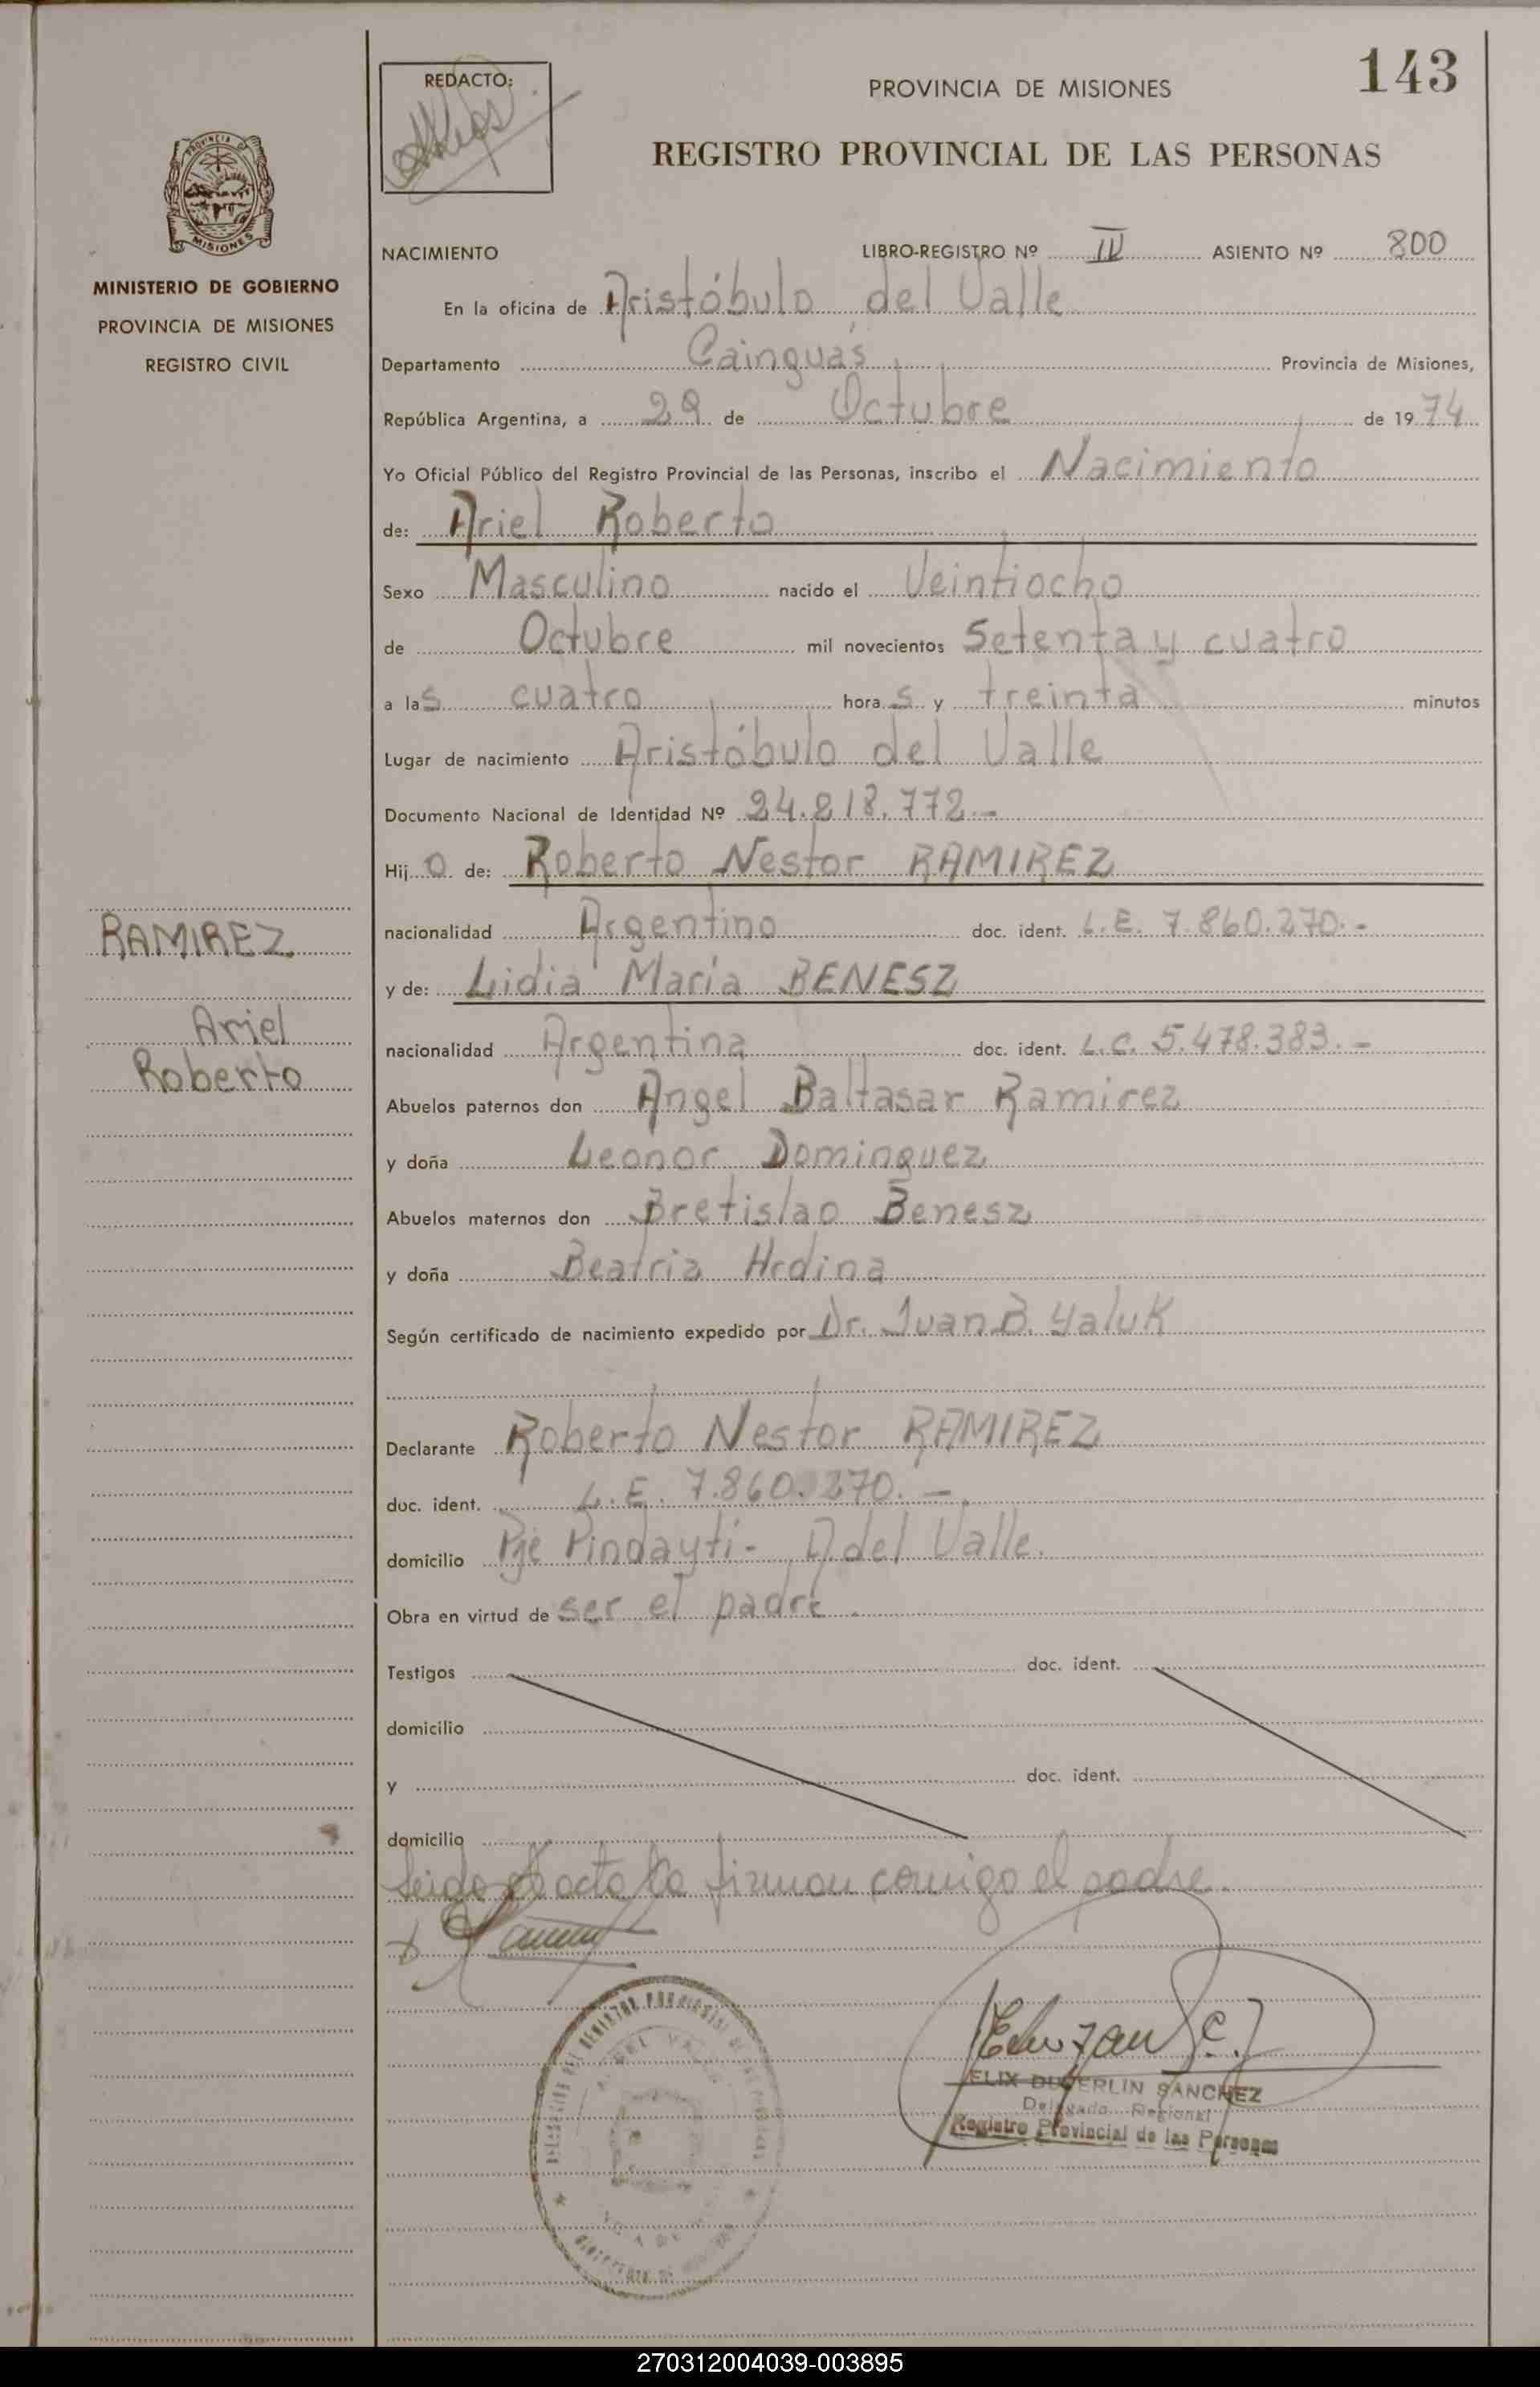 143
REDACTO:
PROVINCIA DE MISIONES
REGISTRO PROVINCIAL DE LAS PERSONAS
PROVINCIA DE
MISIONES
MINISTERIO DE GOBIERNO
PROVINCIA DE MISIONES
REGISTRO CIVIL
NACIMIENTO LIBRO-REGISTRO Nº IV ASIENTO Nº 800
En la oficina de Aristóbulo del Valle
Departamento Cainguás Provincia de Misiones,
República Argentina, a 29 de Octubre de 1974
Yo Oficial Público del Registro Provincial de las Personas, inscribo el Nacimiento
de: Ariel Roberto
Sexo Masculino nacido el Veintiocho
de Octubre mil novecientos Setenta y cuatro
a las cuatro horas y treinta minutos
Lugar de nacimiento Aristóbulo del Valle
Documento Nacional de Identidad Nº 24.218.772.-
Hijo de: Roberto Nestor RAMIREZ
nacionalidad Argentino doc. ident. L.E. 7.860.270.-
y de: Lidia María BENESZ
nacionalidad Argentina doc. ident. L.C. 5.478.383.-
RAMIREZ
Ariel
Roberto
Abuelos paternos don Angel Baltasar Ramirez
y doña Leonor Dominguez
Abuelos maternos don Bretislao Benesz
y doña Beatriz Hrdina
Según certificado de nacimiento expedido por Dr. Juan B. Yaluk
Declarante Roberto Nestor RAMIREZ
doc. ident. L.E. 7.860.270.-
domicilio Pje Pindayti- A del Valle.
Obra en virtud de ser el padre.
Testigos doc. ident.
domicilio
y doc. ident.
domicilio
Leida el acta la firman comigo el padre.
FELIX DUBERLIN SANCHEZ
Delegado Regional
Registro Provincial de las Personas
270312004039-003895